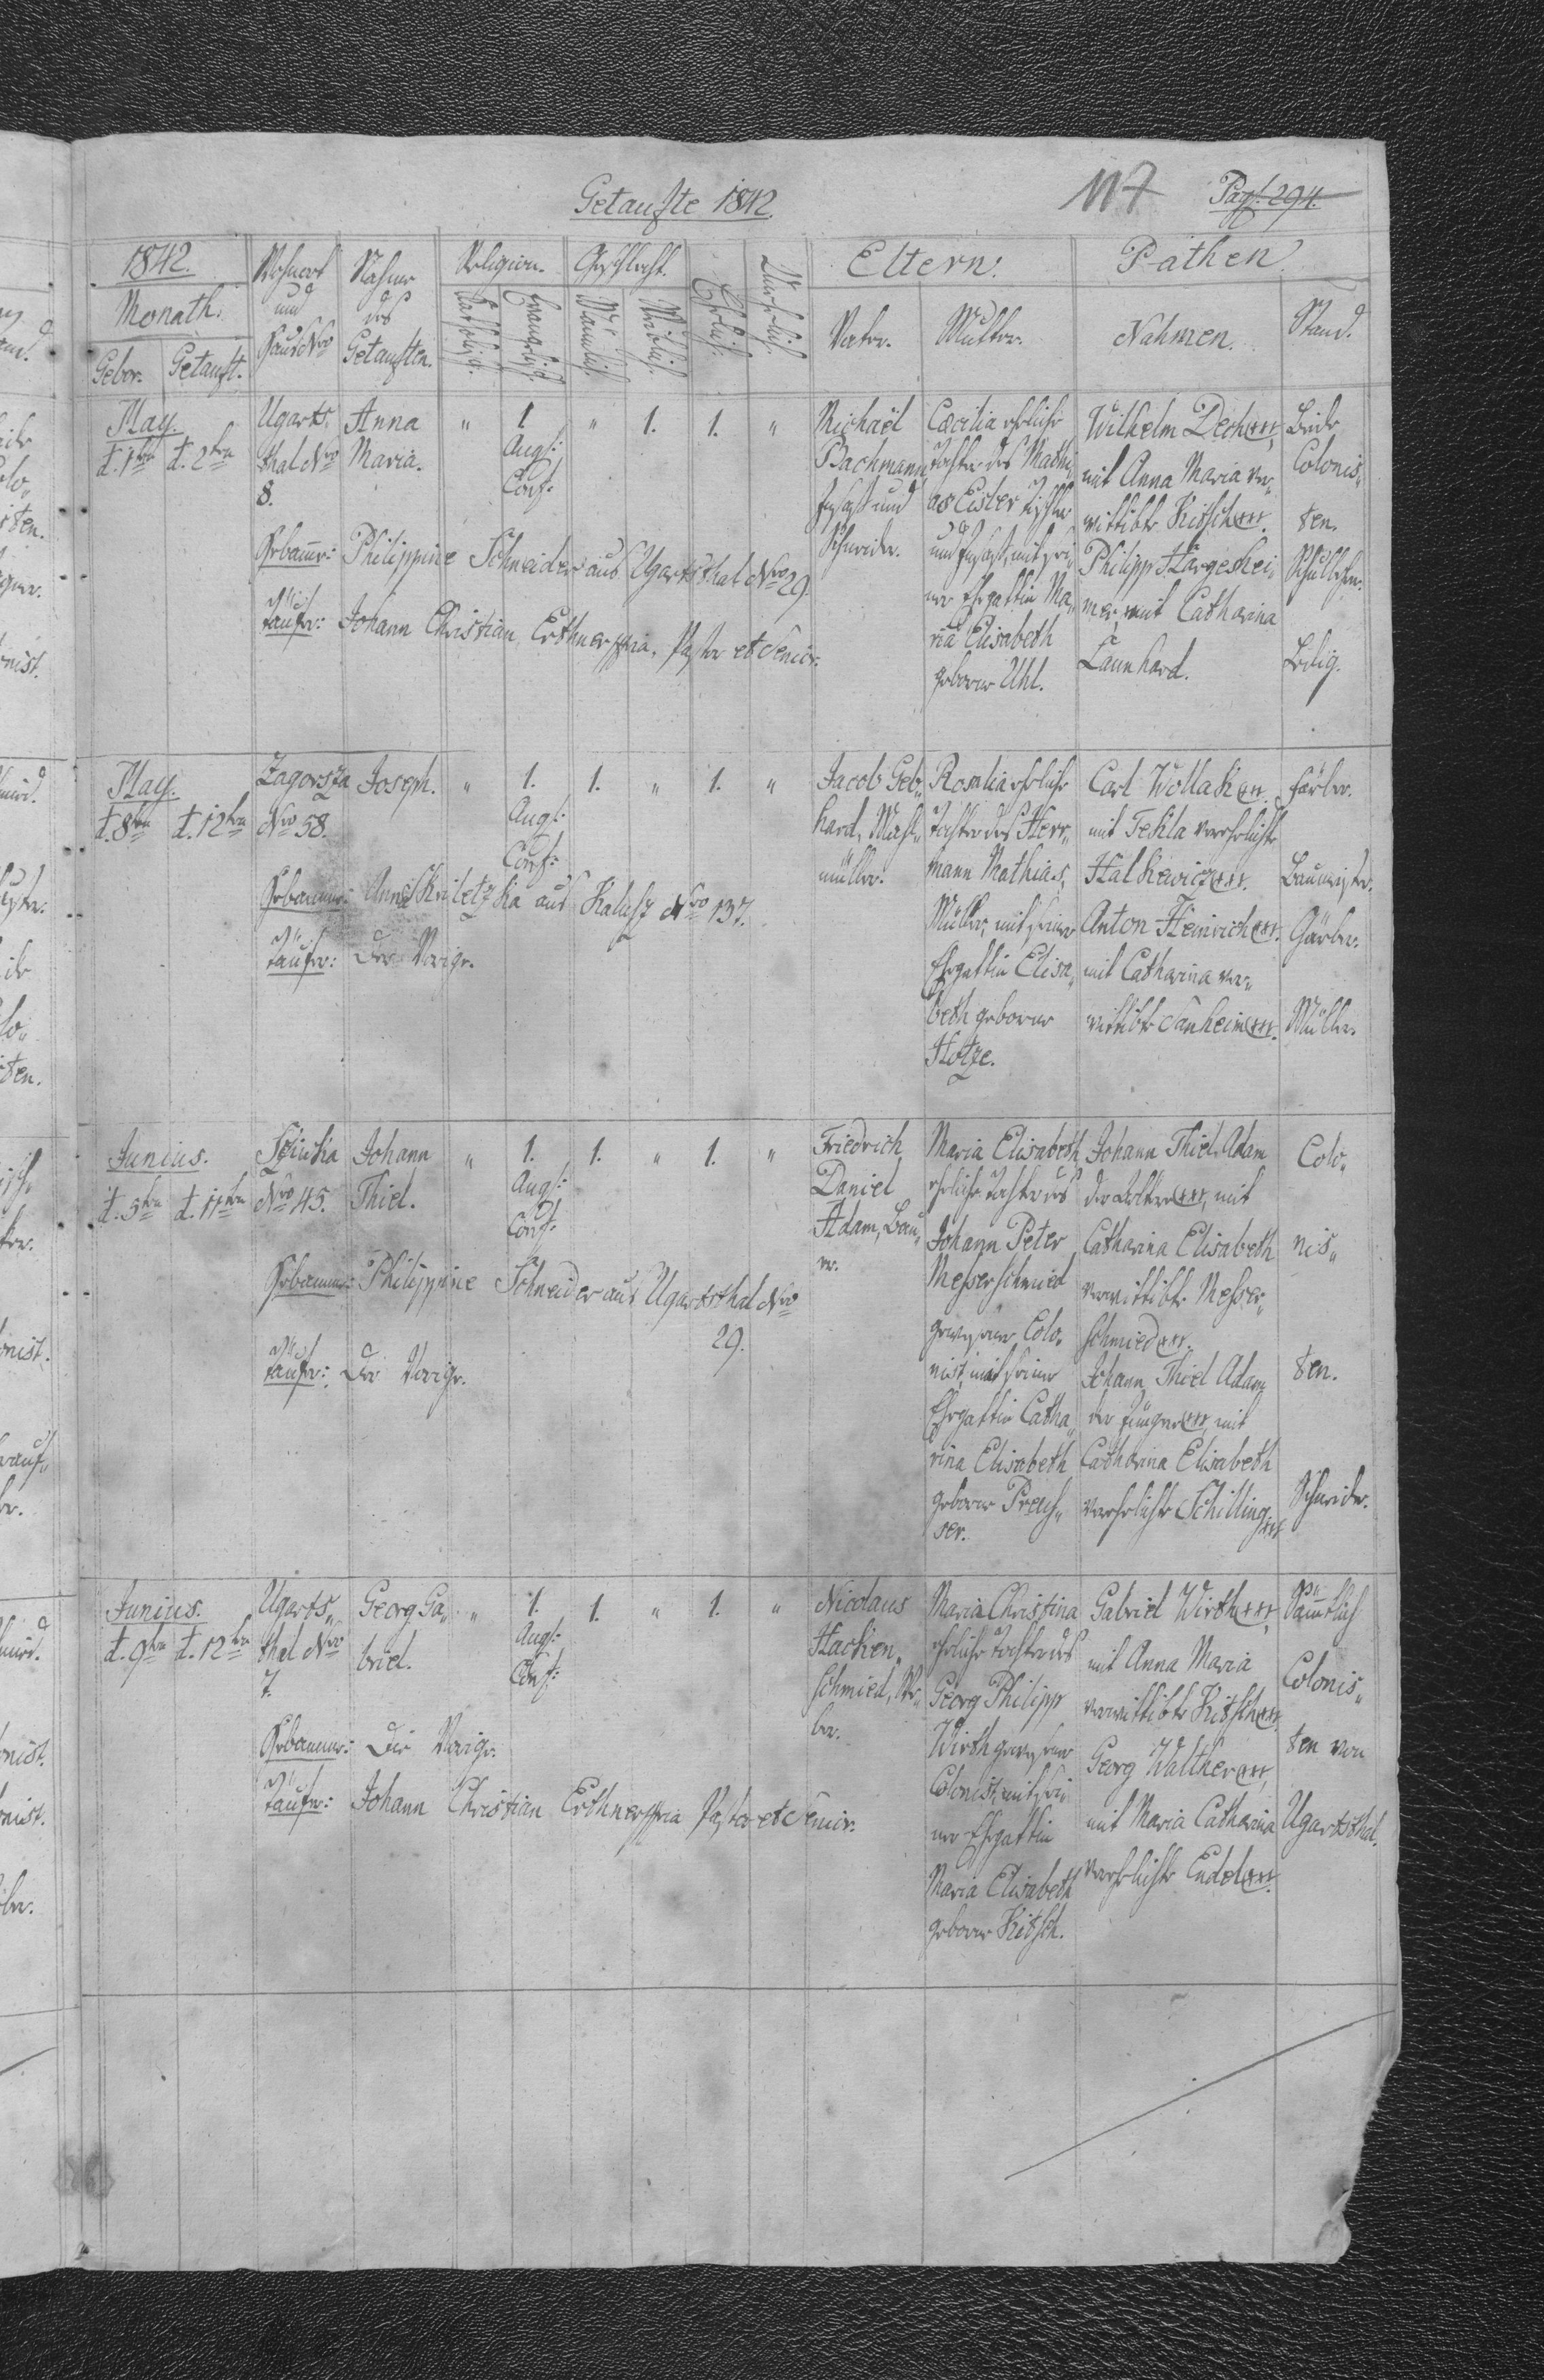 Getaufte 1842.
117
Pag: 294.
1842.
Monath.
Gebor.
Getauft.
Wohnort
und
Haus Nro
Nahme
des
Getauften.
Religion.
Katholisch.
Evangelisch.
Geschlecht.
Männlich.
Weiblich.
Ehelich.
Unehelich.
Eltern.
Vater.
Mutter.
Pathen.
Nahmen.
Stand.
May.
d. 1ten
d. 2ten
Ugarts„
thal Nro
8.
Anna
Maria.
"
1
Augs:
Conf:
"
1.
1.
"
Michaël
Bachmann
Insaß und
Schneider.
Cæcilia eheliche
Tochter des Mathi„
as Eisler Tischler
und Insaß, mit sei„
ner Ehegattin Ma„
ria Elisabeth
geborne Uhl.
Wilhelm Dech +++,
mit Anna Maria ver„
wittibte Kitsch +++.
Philipp Hargeshei„
mer, mit Catharina
Launhard.
Beide
Colonis„
ten.
Schullehr.
Ledig.
Hebamme: Philippine Schneider aus Ugartsthal Nro 29.
Täufer: Johann Christian Erthner mpia. Pastor et Senior.
May.
d. 8ten
d. 12ten
Zagorsza
Nro 58.
Joseph.
"
1.
Augs:
Conf:
1.
"
1.
"
Jacob Geb„
hard, Mahl„
müller.
Rosalia eheliche
Tochter des Herr„
mann Mathias,
Müller, mit seiner
Ehegattin Elisa„
beth geborne
Hotze.
Carl Wollak +++.
mit Tekla verehelichte
Halkewicz +++.
Anton Heinrich +++.
mit Catharina ver„
wittibte Sanheim +++.
Färber.
Baumeister.
Gärber.
Müller.
Hebamme: Anna aus Kalusz Nro 137.
Täufer: Der Vorige.
Junius.
d. 5ten
d. 11ten
Nro 45.
Johann
Thiel.
"
1.
Augs:
Conf:
1.
"
1.
"
Friedrich
Daniel
Adam, Bau„
er.
Maria Elisabeth
eheliche Tochter des
Johann Peter
Messerschmied
gewesener Colo„
nist, mit seiner
Ehegattin Catha„
rina Elisabeth
geborne Preus„
ser.
Johann Thiel Adam
der Aeltere +++, mit
Catharina Elisabeth
verwittibte Messer„
schmied +++.
Johann Thiel Adam
der Jüngere +++, mit
Catharina Elisabeth
verehelichte Schilling +++
Colo„
nis„
ten.
Schneider.
Hebamme: Philippine Schneider aus Ugartsthal Nro
29.
Täufer: Der Vorige.
Junius.
d. 9ten
d. 12ten
Ugarts„
thal Nro
7.
Georg Ga„
briel.
"
1.
Augs:
Conf:
1.
"
1.
"
Nicolaus
Hacken„
schmied, We„
ber.
Maria Christina
eheliche Tochter des
Georg Philipp
Wirth gewesener
Colonist, mit sei„
ner Ehegattin
Maria Elisabeth
geborne Kitsch.
Gabriel Wirth +++,
mit Anna Maria
verwittibte Kitsch +++
Georg Walther +++,
mit Maria Catharina
verehelichte Endel +++.
Sämmtlich
Colonis„
ten von
Ugartsthal.
Hebamme: Die Vorige.
Täufer: Johann Christian Erthner mpia Pastor et Senior.